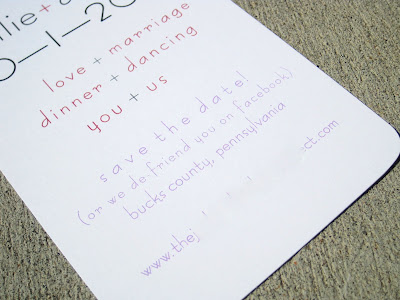 lie+
0—1—20
love + marriage
dinner + dancing
you + us
save the date!
(or we de friend you on facebook)
bucks county, pennsylvania
www.thej ct.com